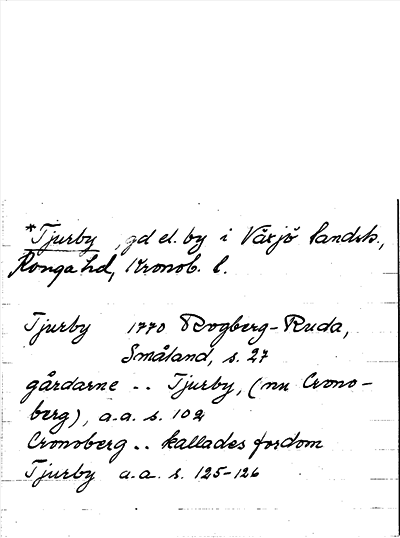 *Tjurby, gd el. by i Växjö landsk.,
Konga hd, Kronob. l.
Tjurby 1770 Rogberg-Ruda,
Småland, s. 27
gårdarne .. Tjurby, (nu Crono-
berg), a.a. s. 102
Cronoberg .. kallades fordom
Tjurby a.a. s. 125-126